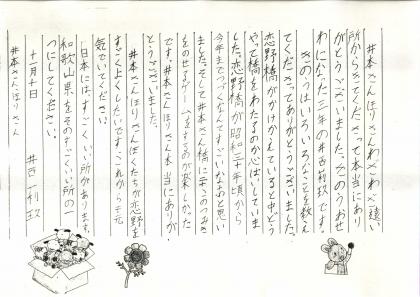 井本さんほりさんわざわざ遠い
所からきてくださって本当にあり
がとうございました。このうおせ
わになった三年の井西莉玖です。
きのうはいろいろなことを教え
てくださってありがとうございました。
恋野橋がかけかえているとき中どう
やって橋をわたるのか心ぱいしていま
した。恋野橋が昭和三十年頃から
今年までつづくなんてすごいなあと思い
ました。そして井本さん橋に
をのせるゲームをするのが楽しかった
です。井本さんほりさん本当にありが
とうございました。
井本さんほりさんぼくたちが恋野を
すごくよくしたいです。これからも元
気でいてください。
日本には、すごくいい所があります。
和歌山県をそのすごくいい所の一
つにしてください。
十一月十日
井西莉玖
井本さんほりさん